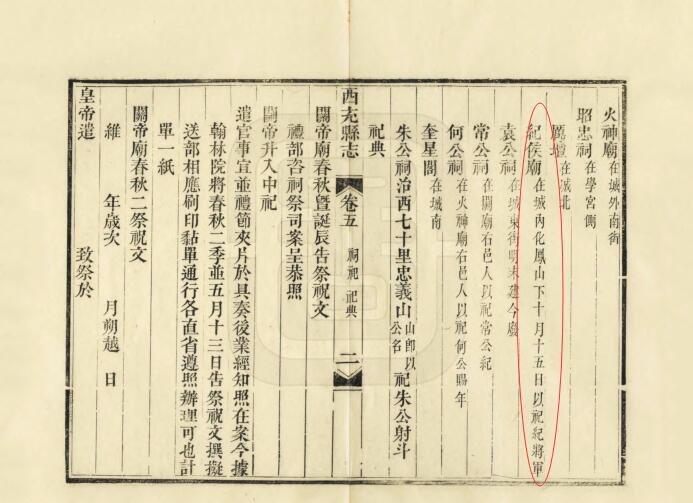 火神廟在城外南街
昭忠祠在學宮側
厲壇在城北
紀侯廟在城內化鳳山下十月十五日以祀紀將軍
袁公祠在城東街明末建今廢
常公祠在關廟右邑人以祀常公紀
何公祠在火神廟右邑人以祀何公賜年
奎星閣在城南
朱公祠治西七十里忠義山山即以公名祀朱公射斗
祀典
西充縣志
卷五
祠祀 祀典
二
關帝廟春秋暨誕辰告祭祝文
禮部咨祠祭司案呈恭照
關帝升入中祀
遣官事宜並禮節夾片於具奏後業經知照在案今據
翰林院將春秋二季並五月十三日告祭祝文撰擬
送部相應刷印黏單通行各直省遵照辦理可也計
單一紙
關帝廟春秋二祭祝文
維 年歲次 月朔越 日
皇帝遣 致祭於